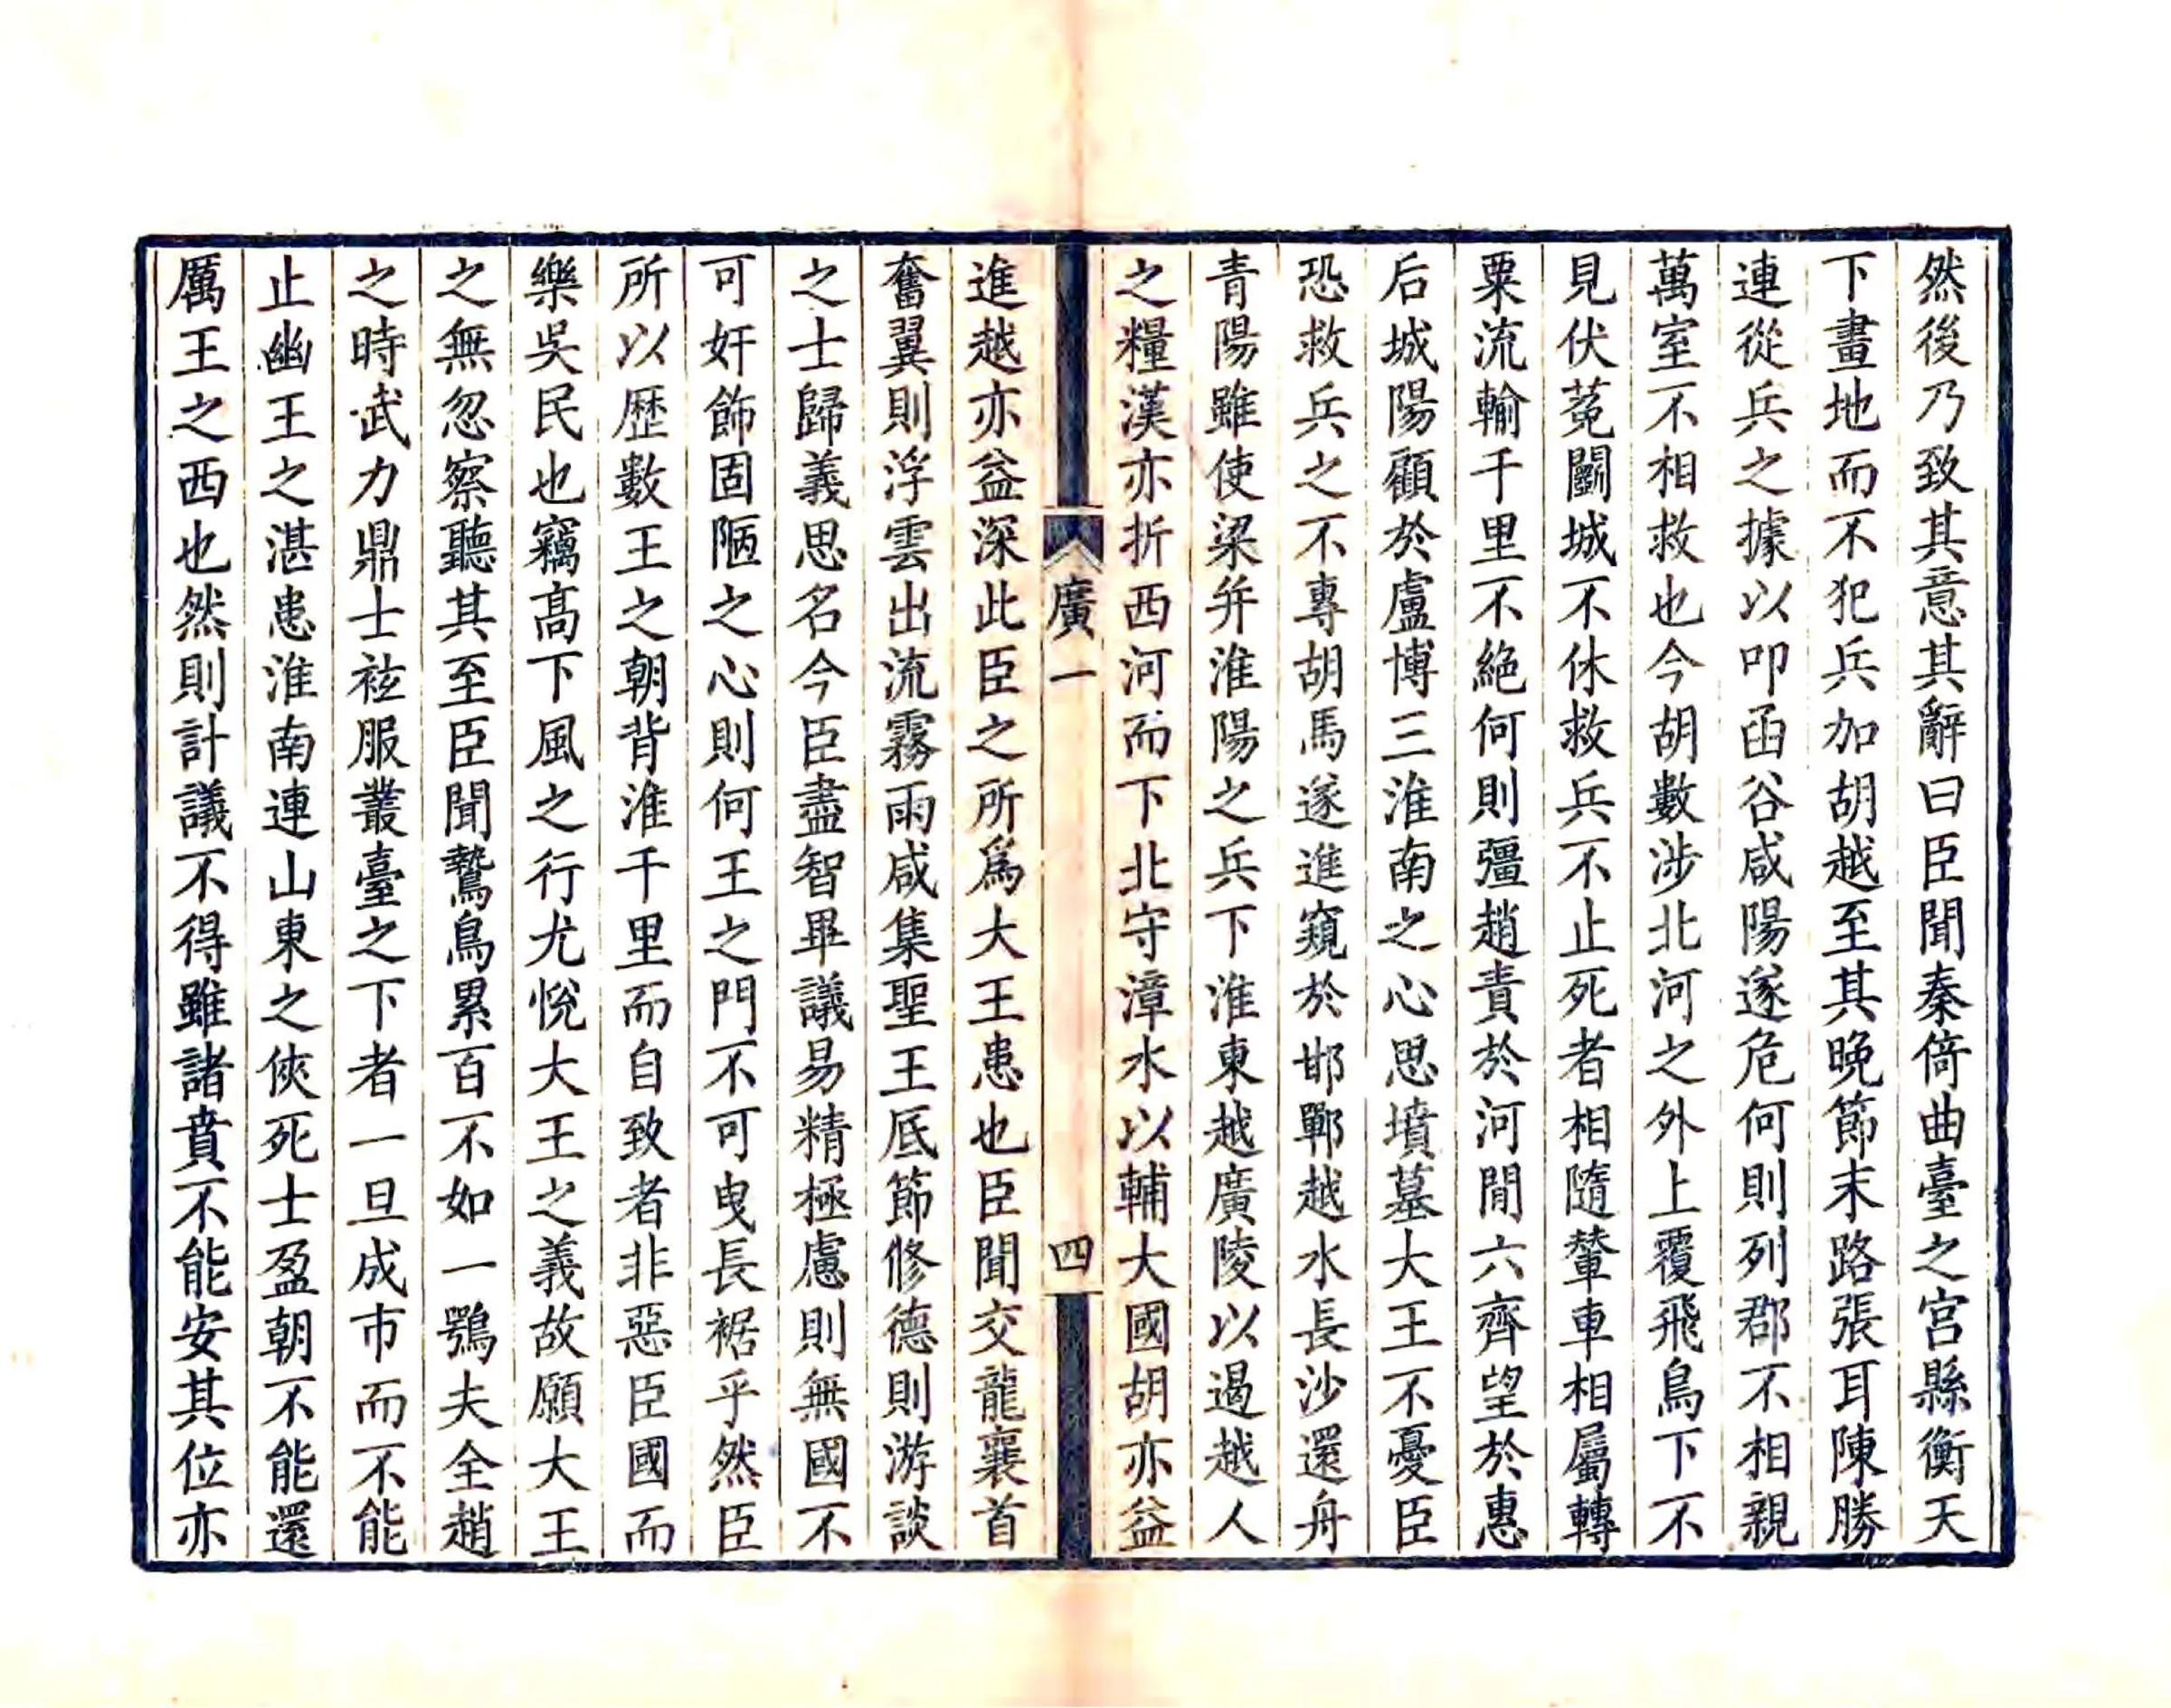 然後乃致其意其辭曰臣聞秦倚曲臺之宮縣衡天
下畫地而不犯兵加胡越至其晚節末路張耳陳勝
連從兵之據以叩函谷咸陽遂危何則列郡不相親
萬室不相救也今胡數涉北河之外上覆飛鳥下不
見伏菟鬭城不休救兵不止死者相隨輦車相屬轉
粟流輸千里不絕何則彊趙責於河閒六齊望於惠
后城陽顧於盧博三淮南之心思墳墓大王不憂臣
恐救兵之不專胡馬遂進窺於邯鄲越水長沙還舟
青陽雖使梁并淮陽之兵下淮東越廣陵以遏越人
之糧漢亦折西河而下北守漳水以輔大國胡亦益
廣一
四
進越亦益深此臣之所爲大王患也臣聞交龍襄首
奮翼則浮雲出流霧雨咸集聖王底節修德則游談
之士歸義思名今臣盡智畢議易精極慮則無國不
可奸飾固陋之心則何王之門不可曳長裾乎然臣
所以歷數王之朝背淮千里而自致者非惡臣國而
樂吳民也竊高下風之行尤悅大王之義故願大王
之無忽察聽其至臣聞鷙鳥累百不如一鶚夫全趙
之時武力鼎士袨服叢臺之下者一旦成市而不能
止幽王之湛患淮南連山東之俠死士盈朝不能還
厲王之西也然則計議不得雖諸賁不能安其位亦